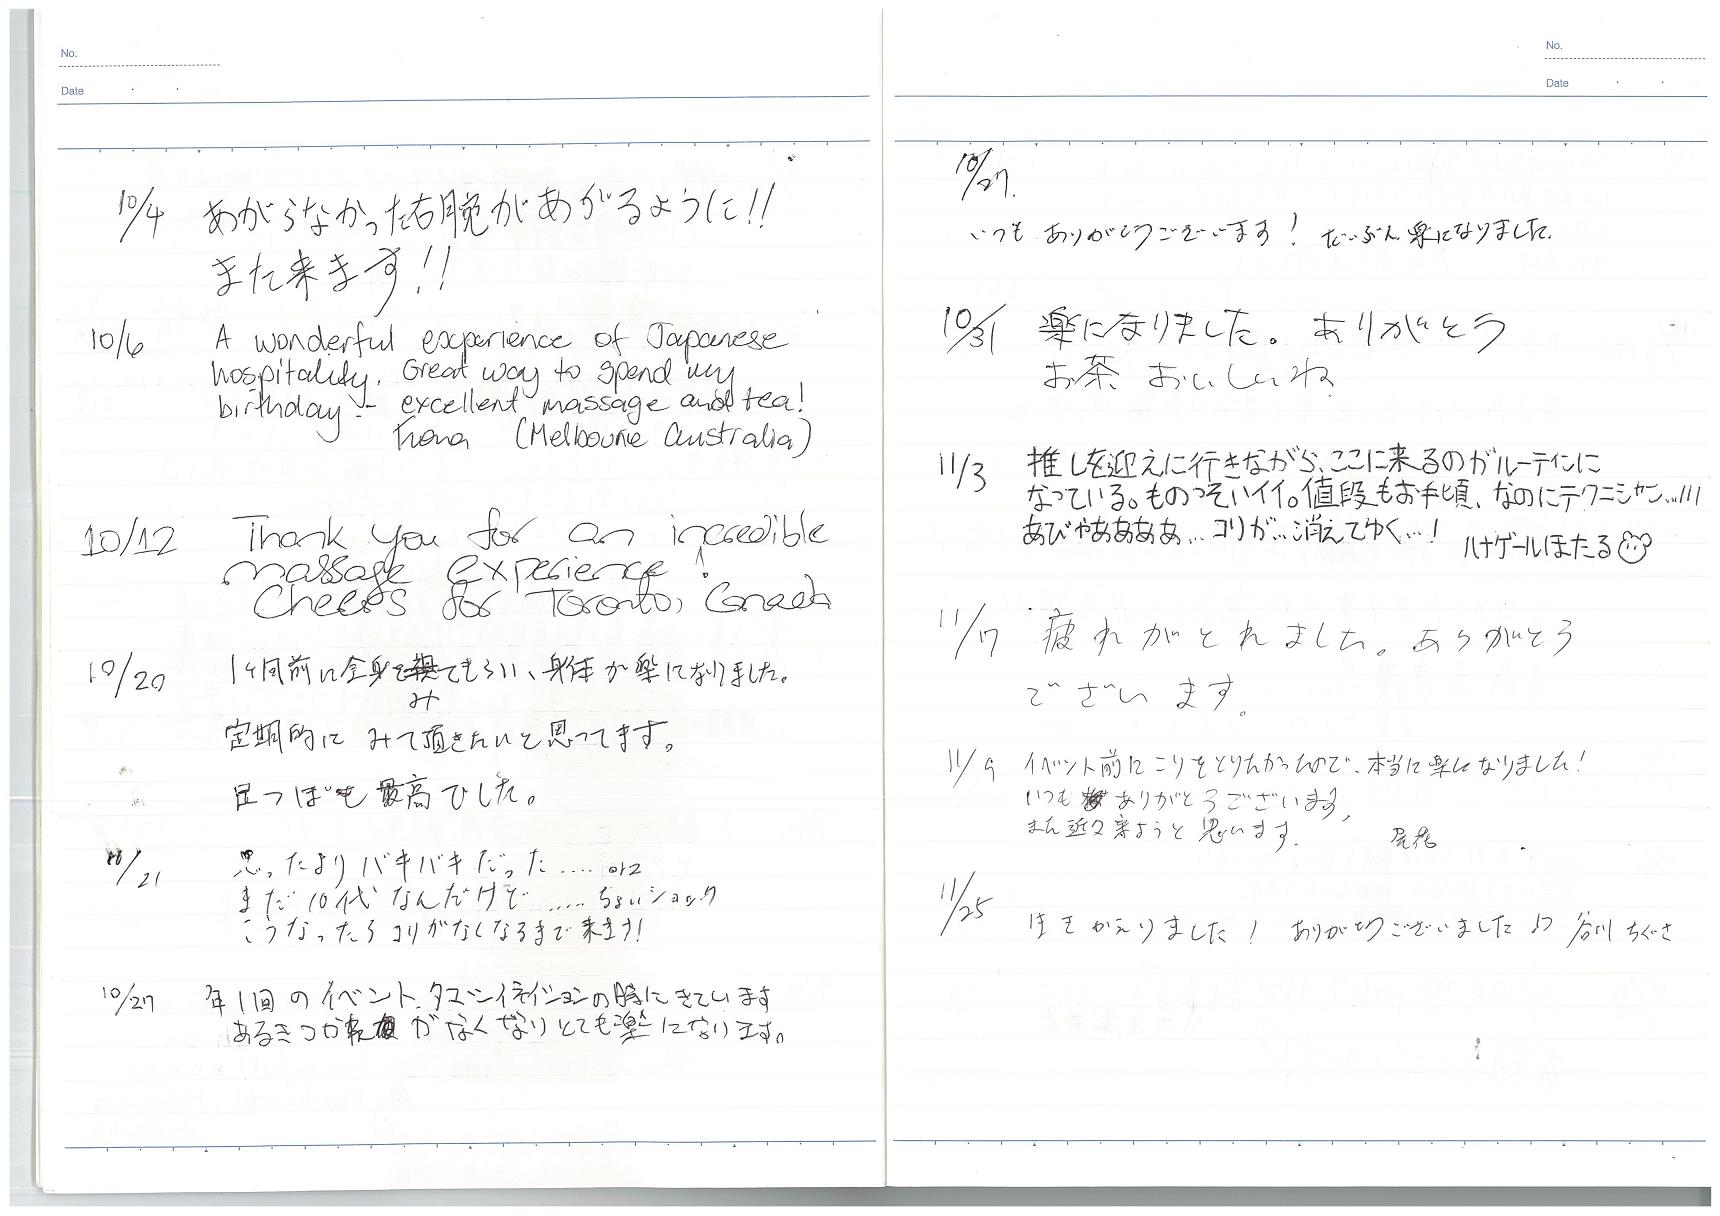 No.
Date
10/4 あがらなかった右腕があがるように!!
また来ます!!
10/6 A wonderful experience of Japanese
hospitality. Great way to spend my
birthday - excellent massage and tea!
Fiona (Melbourne Australia)
10/12 Thank you for an incredible
massage experience!
Cheers for Toronto, Canada
10/20 1ヶ月前に全身をみてもらい、身体が楽になりました。
定期的に みて頂きたいと思ってます。
足つぼも最高でした。
10/21 思ったよりバキバキだった.... orz
まだ10代なんだけど..... ちょいショック
こうなったらコリがなくなるまで来ます!
10/27 年1回のイベント、の時にきています
がなくなりとても楽になります。
No.
Date
10/27.
いつも ありがとうございます! だいぶん楽になりました.
10/31 楽になりました。ありがとう
お茶 おいしいね
11/3 推しを迎えに行きながら、ここに来るのがルーティンに
なっている。ものっそいイイ。値段もお手頃、なのにテクニシャン...!!!
あびゃああああ... コリが...消えてゆく...! ハナゲールほたる
11/7 疲れがとれました。ありがとう
ございます。
11/9 イベント前にこりをとりたかったので、本当に楽になりました!
いつもありがとうございます、
また近々来ようと思います.
11/25 生きかえりました! ありがとうございました♪ 谷川 ちぐさ